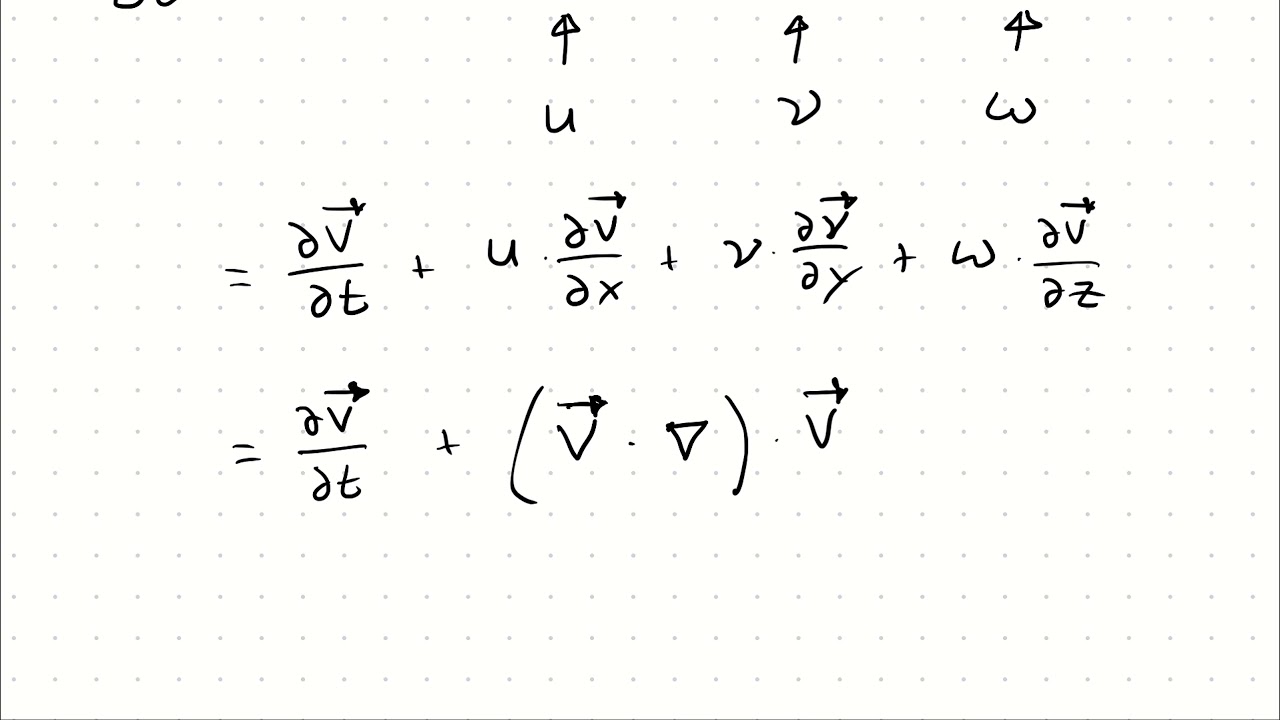 ↑ ↑ ↑
u v ω
= ∂V⃗/∂t + u · ∂V⃗/∂x + v · ∂V⃗/∂y + ω · ∂V⃗/∂z
= ∂V⃗/∂t + (V⃗ · ∇) · V⃗